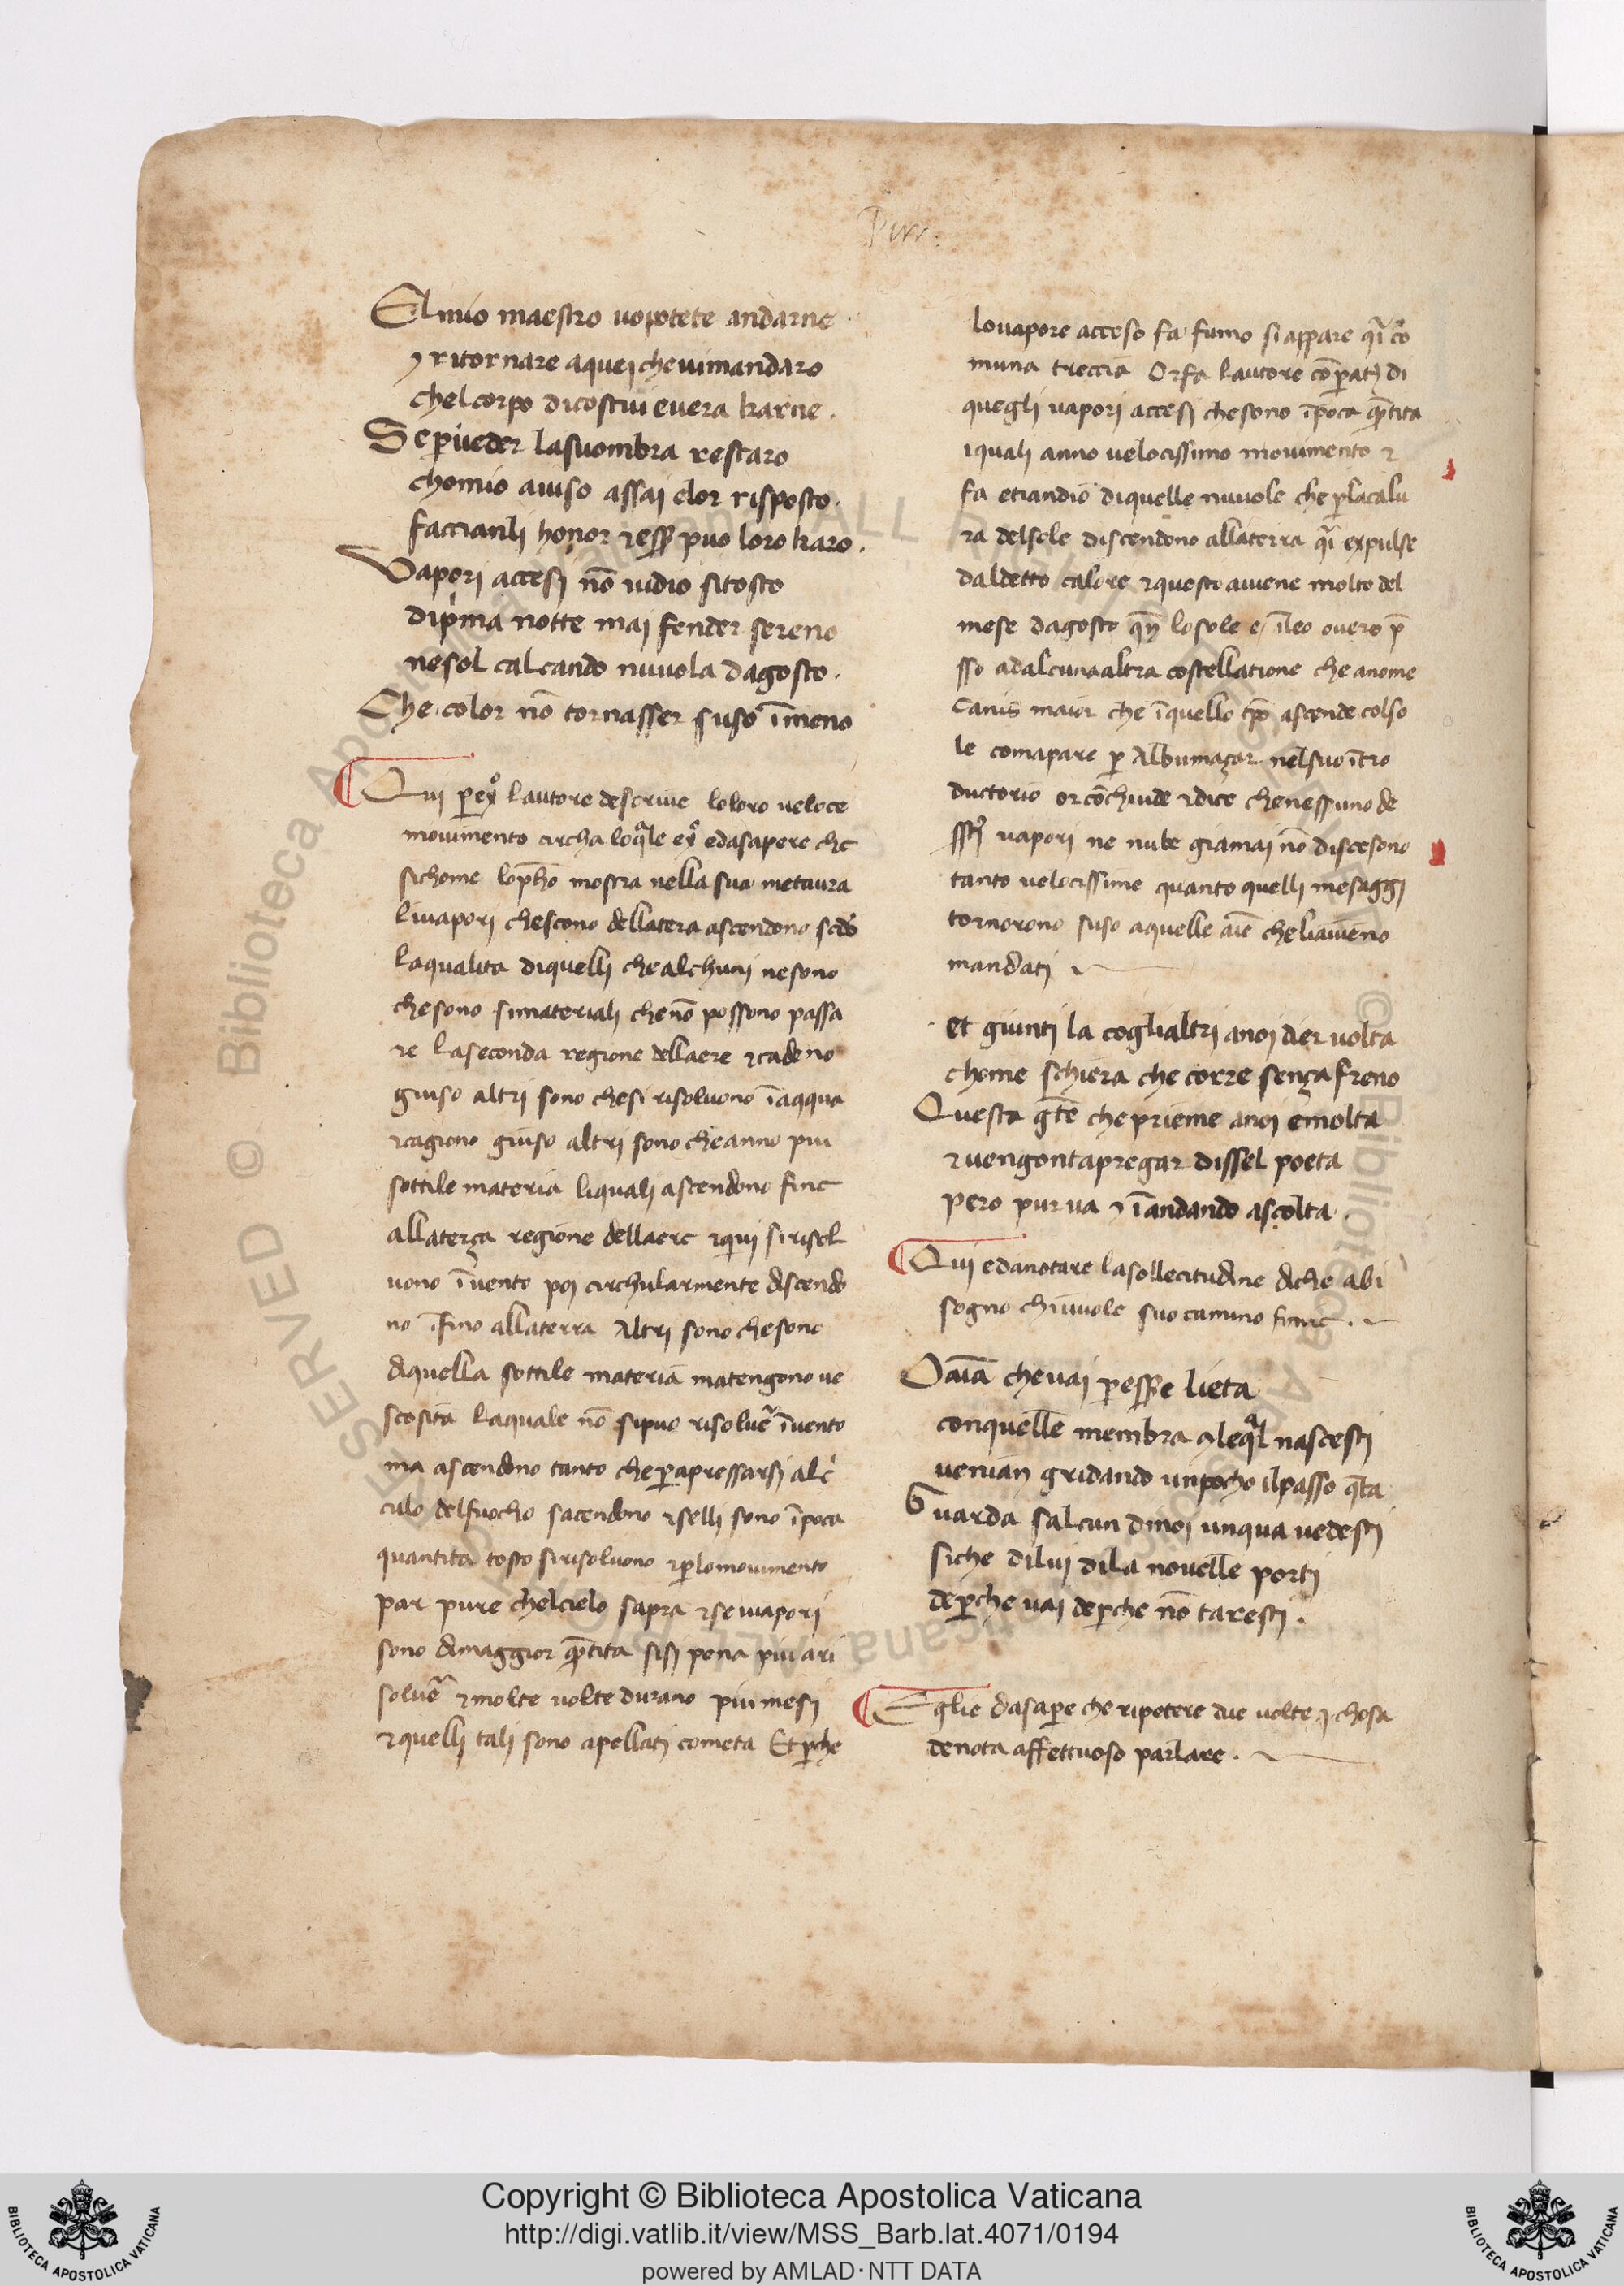 Pur:
El mio maestro vo potete andarne
⁊ ritornare aquei che vi mandaro
chel corpo dicostui e vera karne.
Se p̱ veder la su ombra restaro
chomio aviso assai elor risposto.
faccianli honor ⁊ ess̱ puo loro karo.
Vapori accesi nō vidio si tosto
di pͥma notte mai fender sereno
ne sol calcando nuvola dagosto.
Che color nō tornasser suso ī meno
Qui p̱ exͦ lautore descrive loloro veloce
movimento circha loqͣle exͦ e dasapere che
sichome lopħo mostra nella sua metaura
li vapori chescono della tera ascendono scđo
laqualita di quelli che alchuni ne sono
che sono si materiali che nō possono passa
re la seconda regione dellaere ⁊ cadeno
giuso altri sono chesi risolvono ī aqqua
⁊ cagiono giuso altri sono che anno piu
sottile materia liquali ascendono fine
alla terça regione dellaere ⁊ qui si risol
vono ī vento poi circhularmente discendo
no īfino alla terra Altri sono che sono
di quella sottile materia ma tengono ve
scosita la quale nō si puo risolvēͬ ī vento
ma ascendono tanto che p̱ apressarsi al cͥ
culo del fuocho sacendono ⁊ selli sono ī poca
quantita tosto si risolvono ⁊ p̱ lo movimento
par pure chel cielo sapra ⁊ se i vapori
sono di maggior qͣ̄tita sisi pena piu a ri
solvēͬ ⁊ molte volte durano piu mesi
⁊ quelli tali sono apellati cometa Et p̱che
lo vapore acceso fa fumo si appare qͣi cō
muna treccia Or fa lautore cōp̱atiōe di
quegli vapori accesi che sono ī poca qͣ̄tita
i quali anno velocissimo movimento ⁊
fa etiandio di quelle nuvole che p̱ la calu
ra del sole discendono alla terra qͣi expulse
dal detto calore ⁊ questo aviene molto del
mese dagosto qn̄ lo sole e ī leo overo p̄
sso ad alcuna altra costellatione che a nome
Canis maior che ī quello tp̄o ascende col so
le coma pare p̱ Albumaçar nel suo ītro
ductorio or cōchiude ⁊ dice che nessuno de
ssti vapori ne nube giamai nō discesono
tanto velocissime quanto quelli mesaggi
tornorono suso a quelle aīe che li avieno
mandati
et giunti la cogli altri a noi dier volta
chome schiera che corre sença freno
Questa gēte che prieme a noi e molta
⁊ vengonta pregar dissel poeta
pero pur va ⁊ ī andando ascolta.
Qui e da notare la sollecitudine di che a bi
sogno chi vuole suo camino finire.
O aīa che vai p̱ esse̱ lieta
con quelle membra cō leqͣl nascesti
venian gridando un pocho il passo qͣ̄ta
Guarda salcun di noi unqua vedesti
siche di lui di la novelle porti
de p̱che vai de p̱che nō taresti.
Eglie da sap̱e che ripetere due volte ī chosa
denota affettuoso parlare.
© Biblioteca Apostolica Vaticana ALL RIGHTS RESERVED
Copyright © Biblioteca Apostolica Vaticana
http://digi.vatlib.it/view/MSS_Barb.lat.4071/0194
powered by AMLAD·NTT DATA
BIBLIOTECA APOSTOLICA VATICANA
BIBLIOTECA APOSTOLICA VATICANA